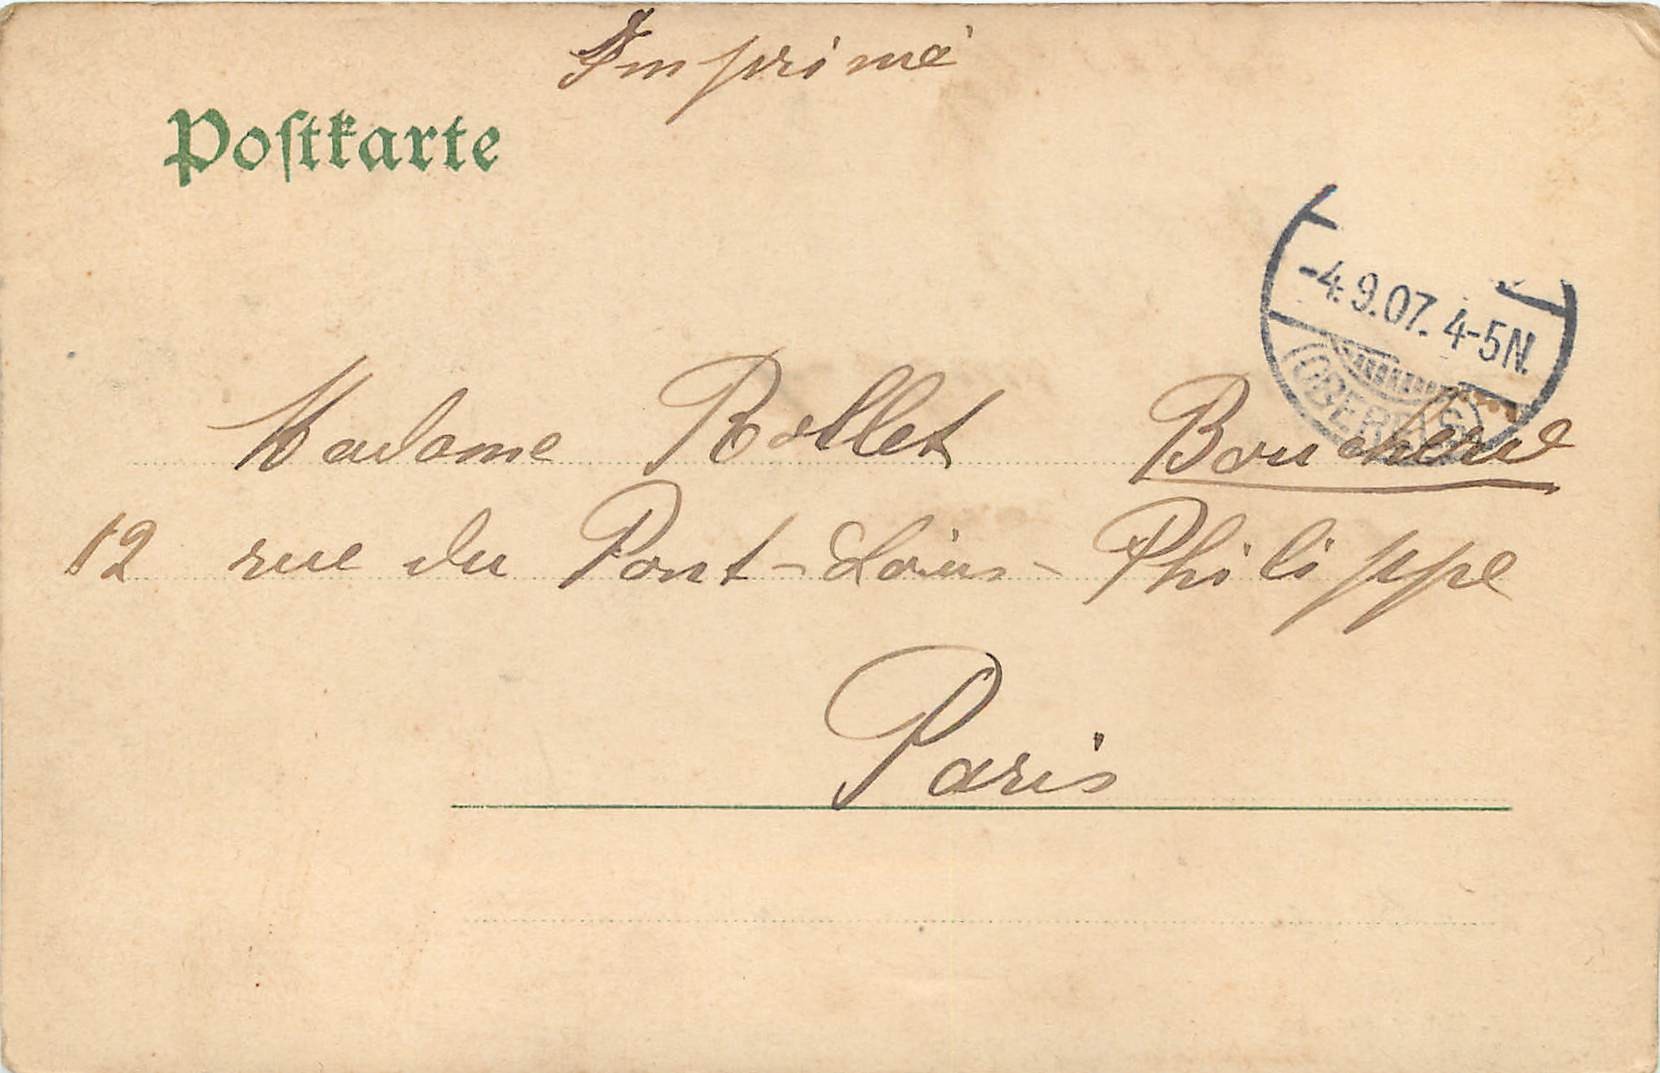 Imprimé
Postkarte
-4.9.07. 4-5N.
Madame Rollet Boucherie
12 rue du Pont-Louis-Philippe
Paris